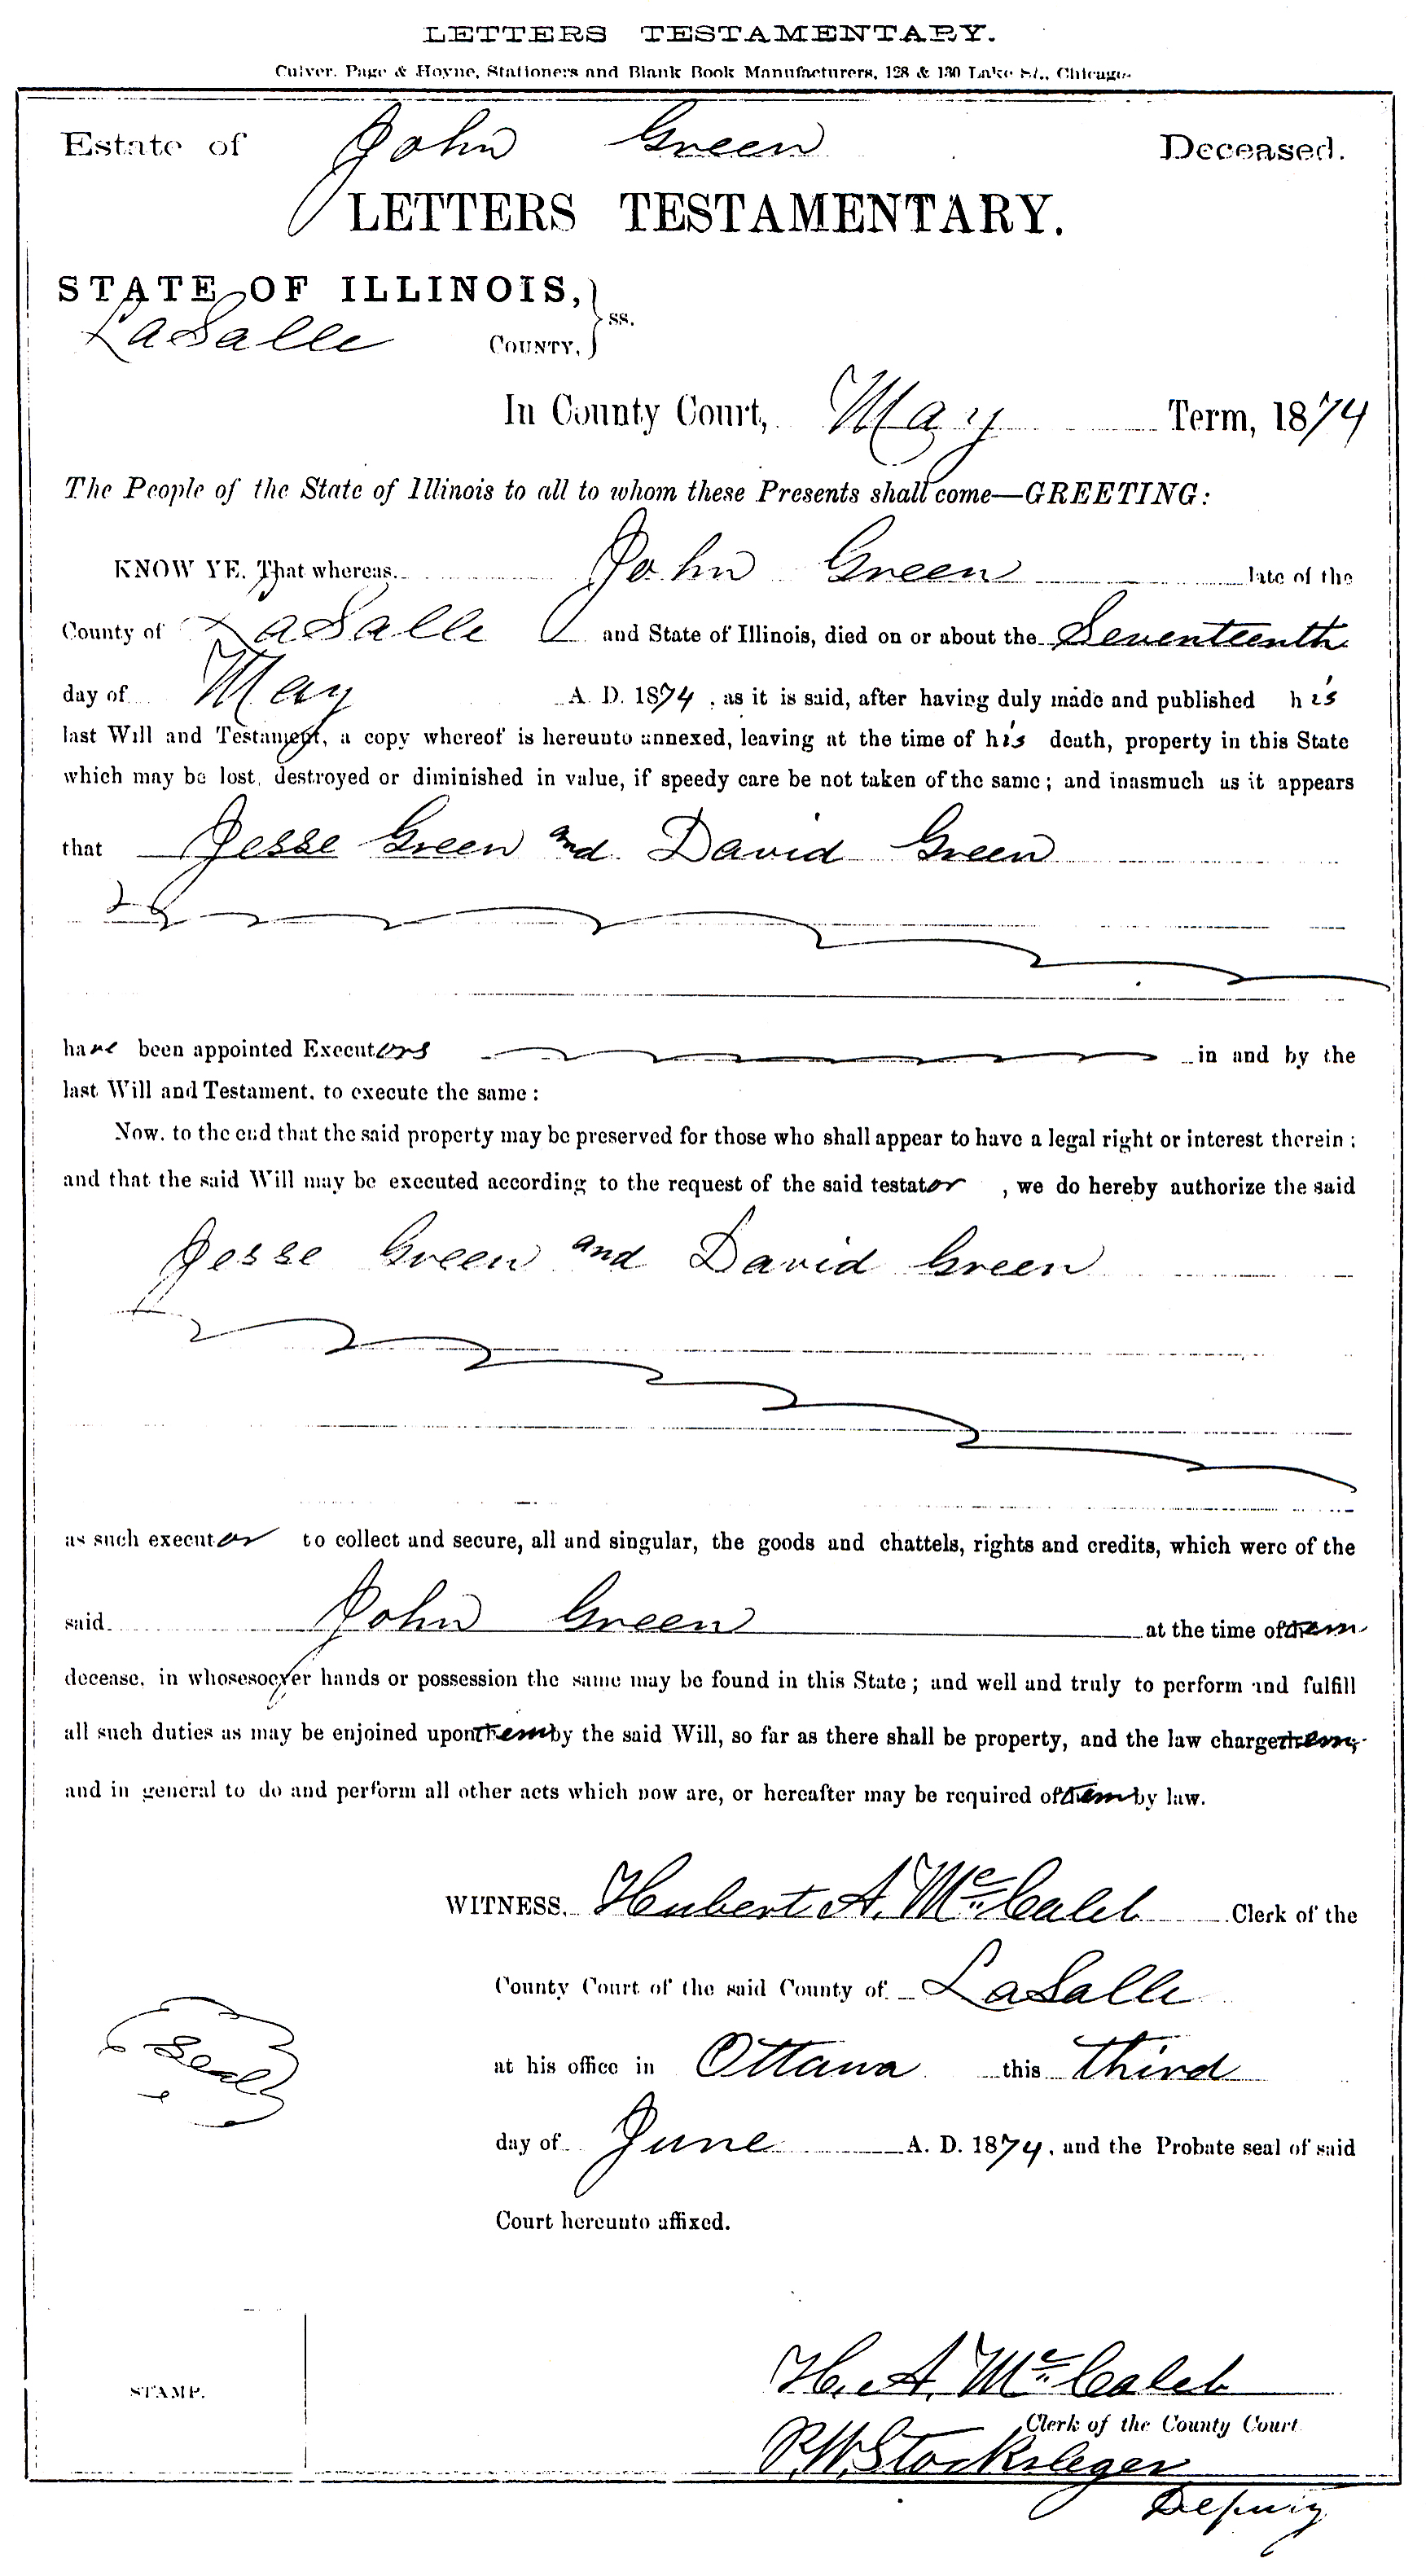 LETTERS TESTAMENTARY.
Culver, Page & Hoyne, Stationers and Blank Book Manufacturers, 128 & 130 Lake St., Chicago.
Estate of John Green Deceased.
LETTERS TESTAMENTARY.
STATE OF ILLINOIS,
LaSalle COUNTY, } ss.
In County Court, May Term, 1874
The People of the State of Illinois to all to whom these Presents shall come—GREETING:
KNOW YE, That whereas John Green late of the
County of LaSalle and State of Illinois, died on or about the Seventeenth
day of May A. D. 1874, as it is said, after having duly made and published his
last Will and Testament, a copy whereof is hereunto annexed, leaving at the time of his death, property in this State
which may be lost, destroyed or diminished in value, if speedy care be not taken of the same; and inasmuch as it appears
that Jesse Green and David Green
have been appointed Executors in and by the
last Will and Testament, to execute the same:
Now, to the end that the said property may be preserved for those who shall appear to have a legal right or interest therein;
and that the said Will may be executed according to the request of the said testator, we do hereby authorize the said
Jesse Green and David Green
as such executor to collect and secure, all and singular, the goods and chattels, rights and credits, which were of the
said John Green at the time of them
decease, in whosesoever hands or possession the same may be found in this State; and well and truly to perform and fulfill
all such duties as may be enjoined upon them by the said Will, so far as there shall be property, and the law charge them;
and in general to do and perform all other acts which now are, or hereafter may be required of them by law.
WITNESS, Hubert A. McCaleb Clerk of the
County Court of the said County of LaSalle
Seal
at his office in Ottawa this third
day of June A. D. 1874, and the Probate seal of said
Court hereunto affixed.
H. A. McCaleb
STAMP.
Clerk of the County Court
P. W. Stocksleger
Deputy